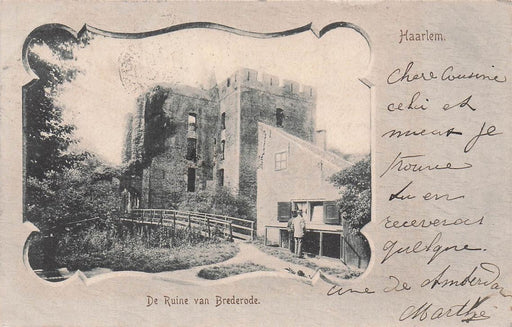 Haarlem.
chere Cousine
celui est
mieux je
trouve
tu en
receveras
quelque
une de Amsterdam
Marthe
De Ruine van Brederode.